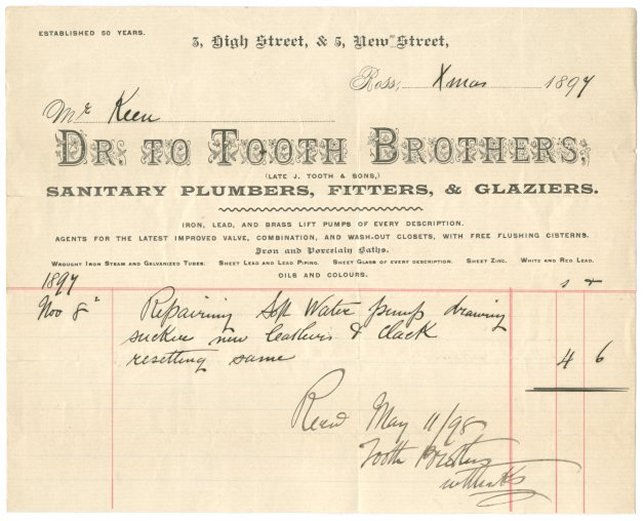 ESTABLISHED 50 YEARS.
3, High Street, & 5, New Street,
Ross, Xmas 1897
Mr Keen
DR. TO TOOTH BROTHERS,
(LATE J. TOOTH & SONS,)
SANITARY PLUMBERS, FITTERS, & GLAZIERS.
IRON, LEAD, AND BRASS LIFT PUMPS OF EVERY DESCRIPTION.
AGENTS FOR THE LATEST IMPROVED VALVE, COMBINATION, AND WASH-OUT CLOSETS, WITH FREE FLUSHING CISTERNS.
Iron and Porcelain Baths.
WROUGHT IRON STEAM AND GALVANIZED TUBES. SHEET LEAD AND LEAD PIPING. SHEET GLASS OF EVERY DESCRIPTION. SHEET ZINC. WHITE AND RED LEAD.
OILS AND COLOURS.
1897
Nov 8 Repairing Soft Water pump drawing
sucker new leathers & clack
resetting same 4 6
Recd May 11/98
Tooth Brothers
with thanks